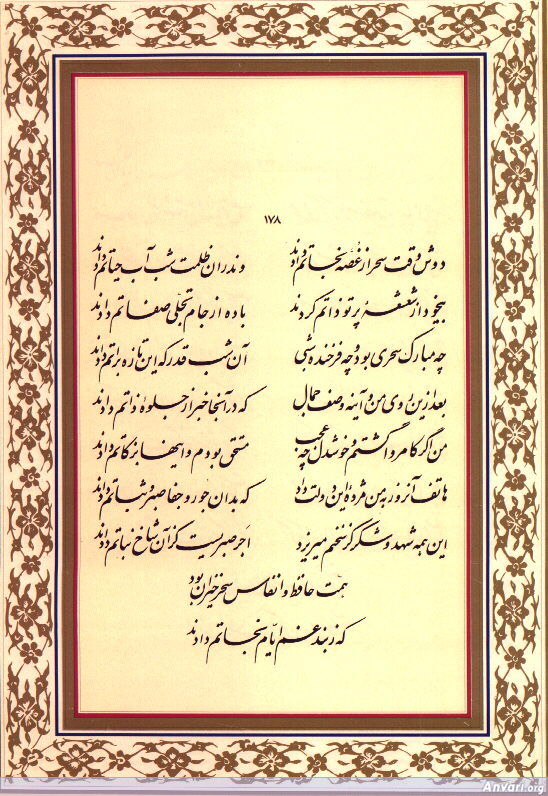 ۱۷۸
دوش وقت سحر از غصه نجاتم دادند وندران ظلمت شب آب حیاتم دادند
بیخود از شعشعهٔ پرتو ذاتم کردند باده از جام تجلی صفاتم دادند
چه مبارک سحری بود و چه فرخنده شبی آن شب قدر که این تازه براتم دادند
بعد ازین روی من و آینه وصف جمال که در آنجا خبر از جلوهٔ ذاتم دادند
من اگر کامروا گشتم و خوشدل چه عجب مستحق بودم و اینها بزکاتم دادند
هاتف آنروز به من مژدهٔ این دولت داد که بدان جور و جفا صبر و ثباتم دادند
این همه شهد و شکر کز سخنم میریزد اجر صبریست کز آن شاخ نباتم دادند
همت حافظ و انفاس سحرخیزان بود
که ز بند غم ایام نجاتم دادند
Anvari.org